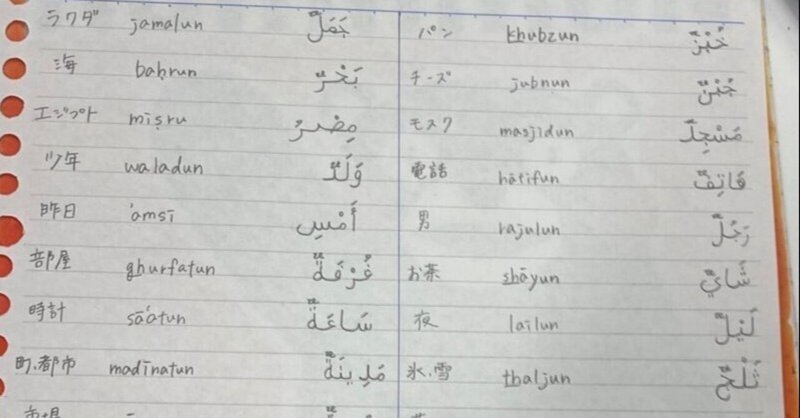 ラクダ jamalun جَمَلٌ
海 baḥrun بَحْرٌ
エジプト miṣru مِصْرُ
少年 waladun وَلَدٌ
昨日 'amsi أَمْسِ
部屋 ghurfatun غُرْفَةٌ
時計 sā'atun سَاعَةٌ
町、都市 madīnatun مَدِينَةٌ
市場
パン khubzun خُبْزٌ
チーズ jubnun جُبْنٌ
モスク masjidun مَسْجِدٌ
電話 hātifun هَاتِفٌ
男 rajulun رَجُلٌ
お茶 shāyun شَايٌ
夜 lailun لَيْلٌ
氷、雪 thaljun ثَلْجٌ